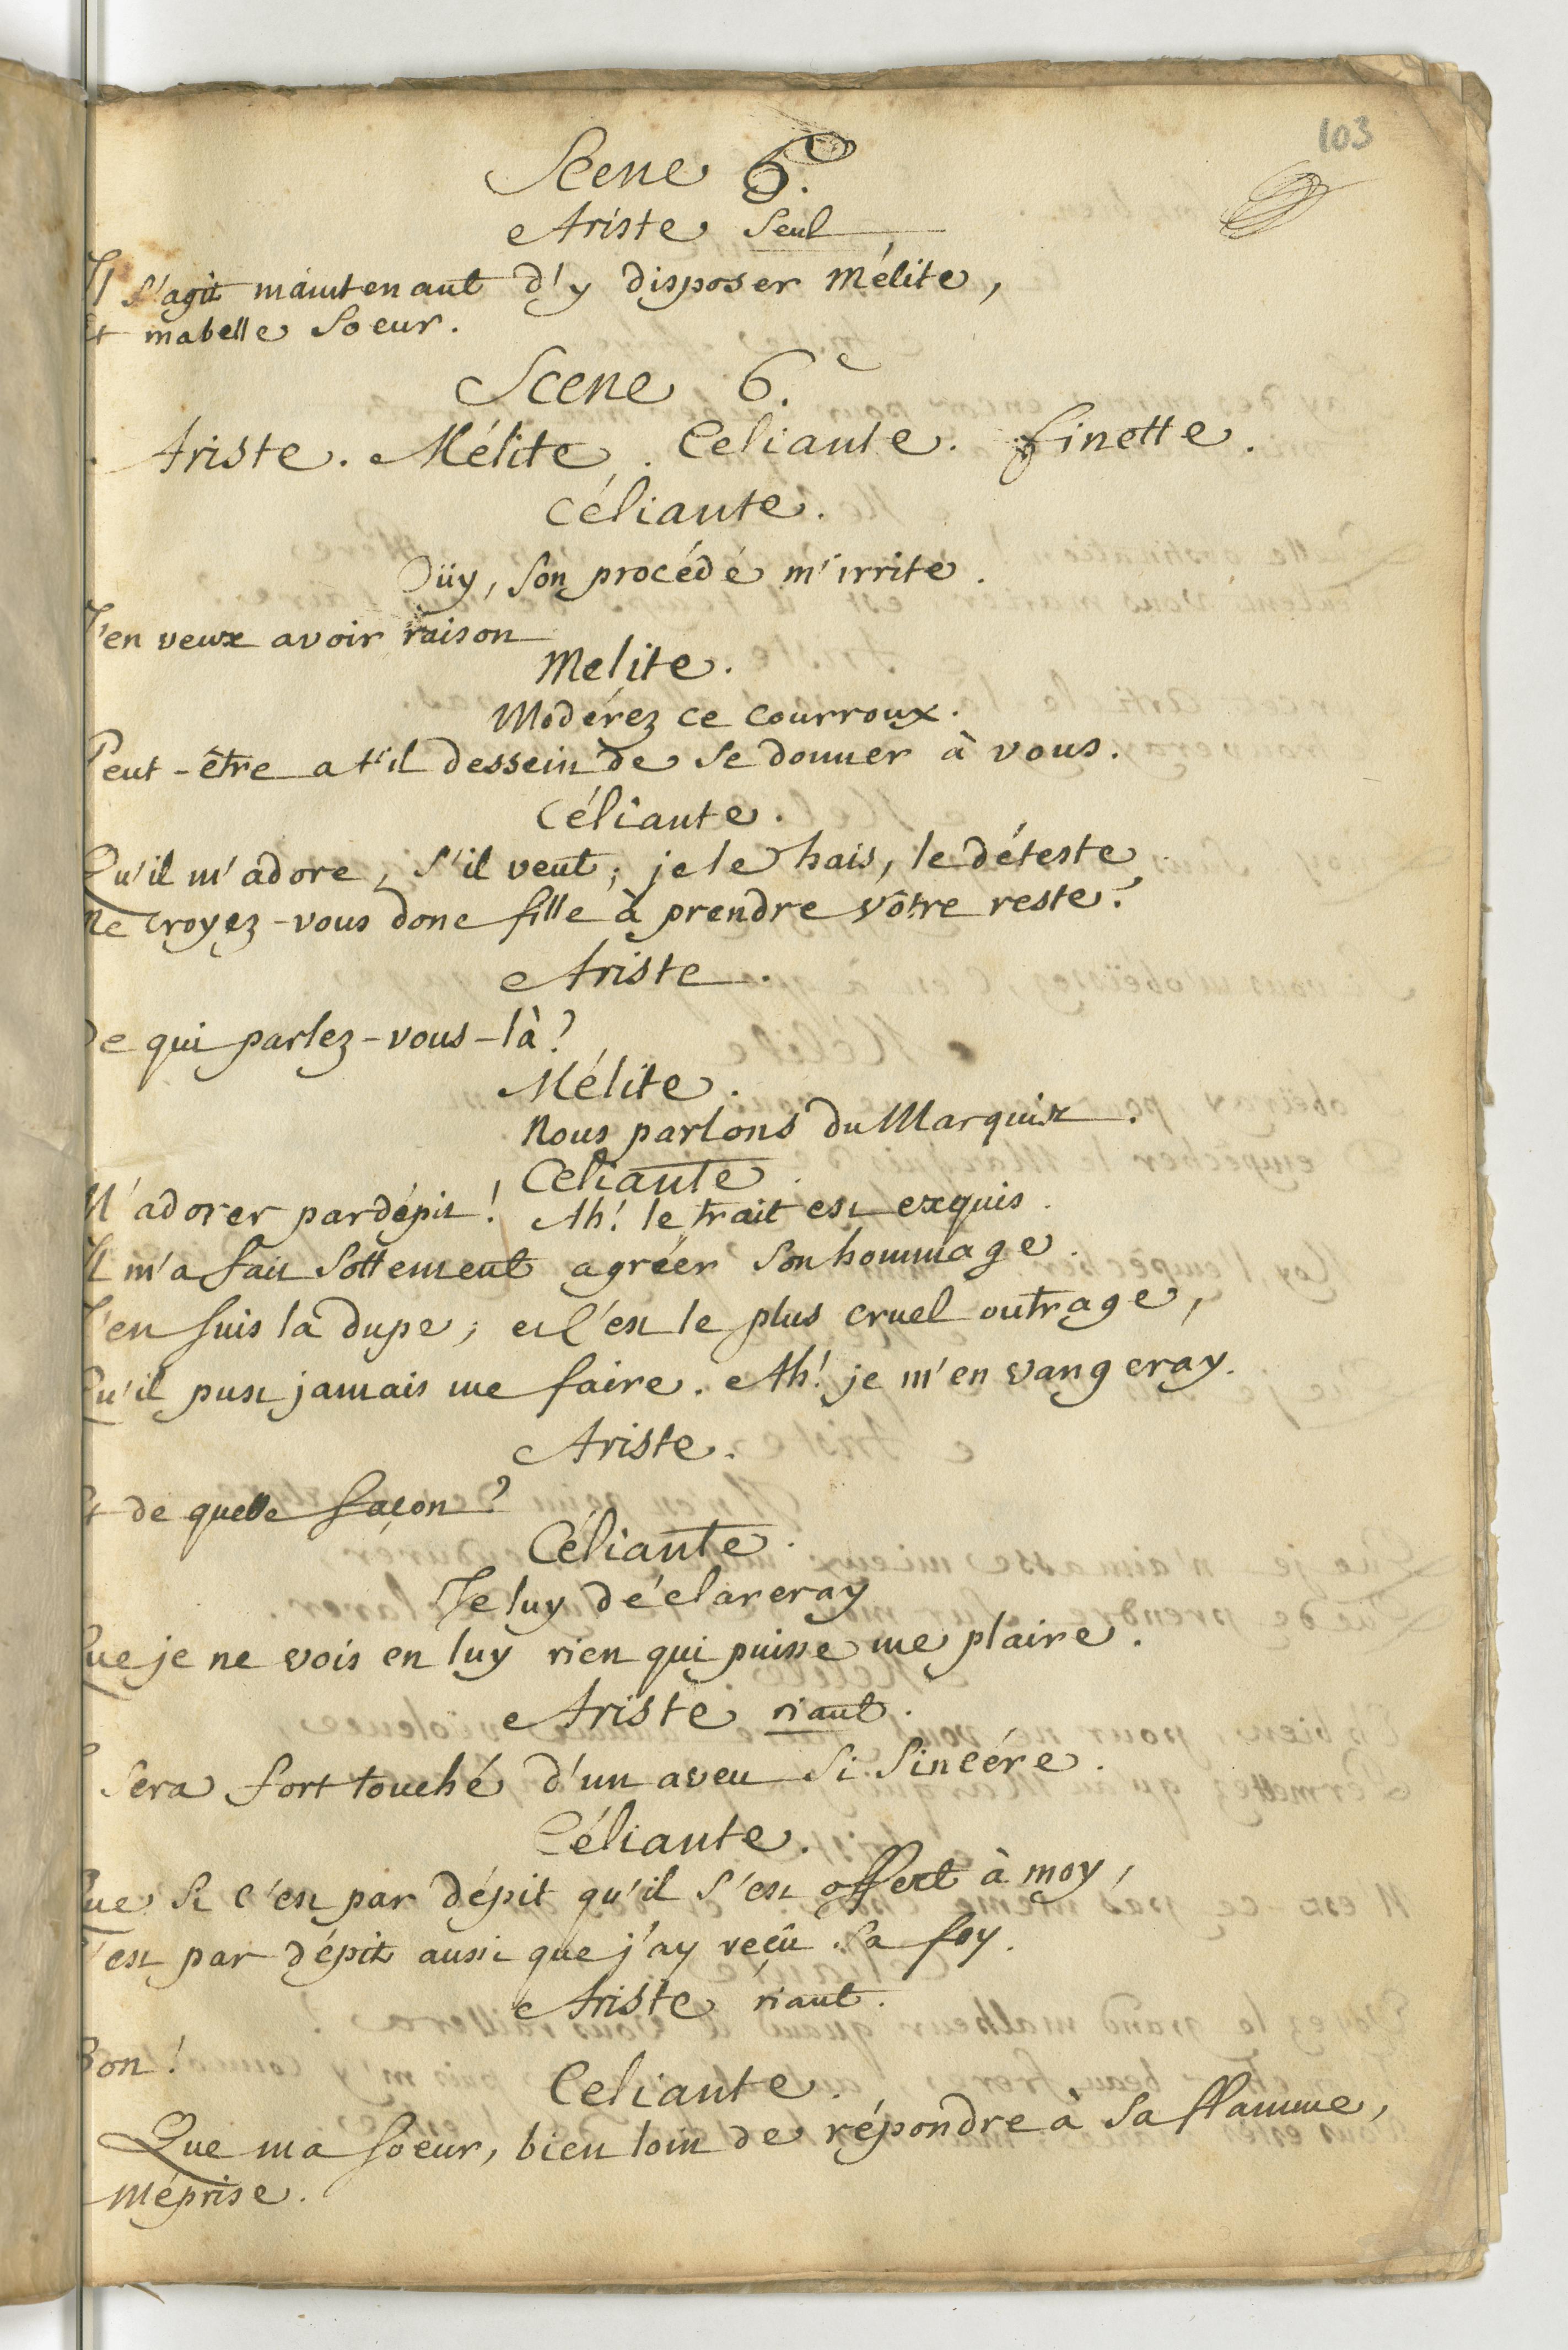 103
Scene 6.e
Ariste Seul
Il s'agit maintenant d'y disposer Mélite,
Et mabelle Soeur.
Scene 6.e
Ariste. Mélite. Celiante. finette.
Céliante.
Oüy, son procédé m'irrite.
J'en veux avoir raison
Melite.
Modérez ce courroux.
Peut-être a t'il dessein de se donner à vous.
Céliante.
Qu'il m'adore, s'il veut; je le hais, le déteste
Me croyez-vous donc fille à prendre vôtre reste?
Ariste.
De qui parlez-vous-là?
Mélite.
Nous parlons du Marquis.
Céliante.
M'adorer par dépit! Ah! le trait est exquis.
Il m'a fait sottement agréer son hommage.
J'en suis la dupe; et c'est le plus cruel outrage,
Qu'il pust jamais me faire. Ah! je m'en vangeray.
Ariste.
Et de quelle façon?
Céliante.
Je luy déclareray
Que je ne vois en luy rien qui puisse me plaire.
Ariste riant.
Il sera fort touché d'un aveu si sincére.
Céliante.
Que si c'est par dépit qu'il s'est offert à moy,
C'est par dépit aussi que j'ay reçû sa foy.
Ariste riant.
Bon!
Celiante.
Que ma soeur, bien loin de répondre à sa flamme,
Méprise.